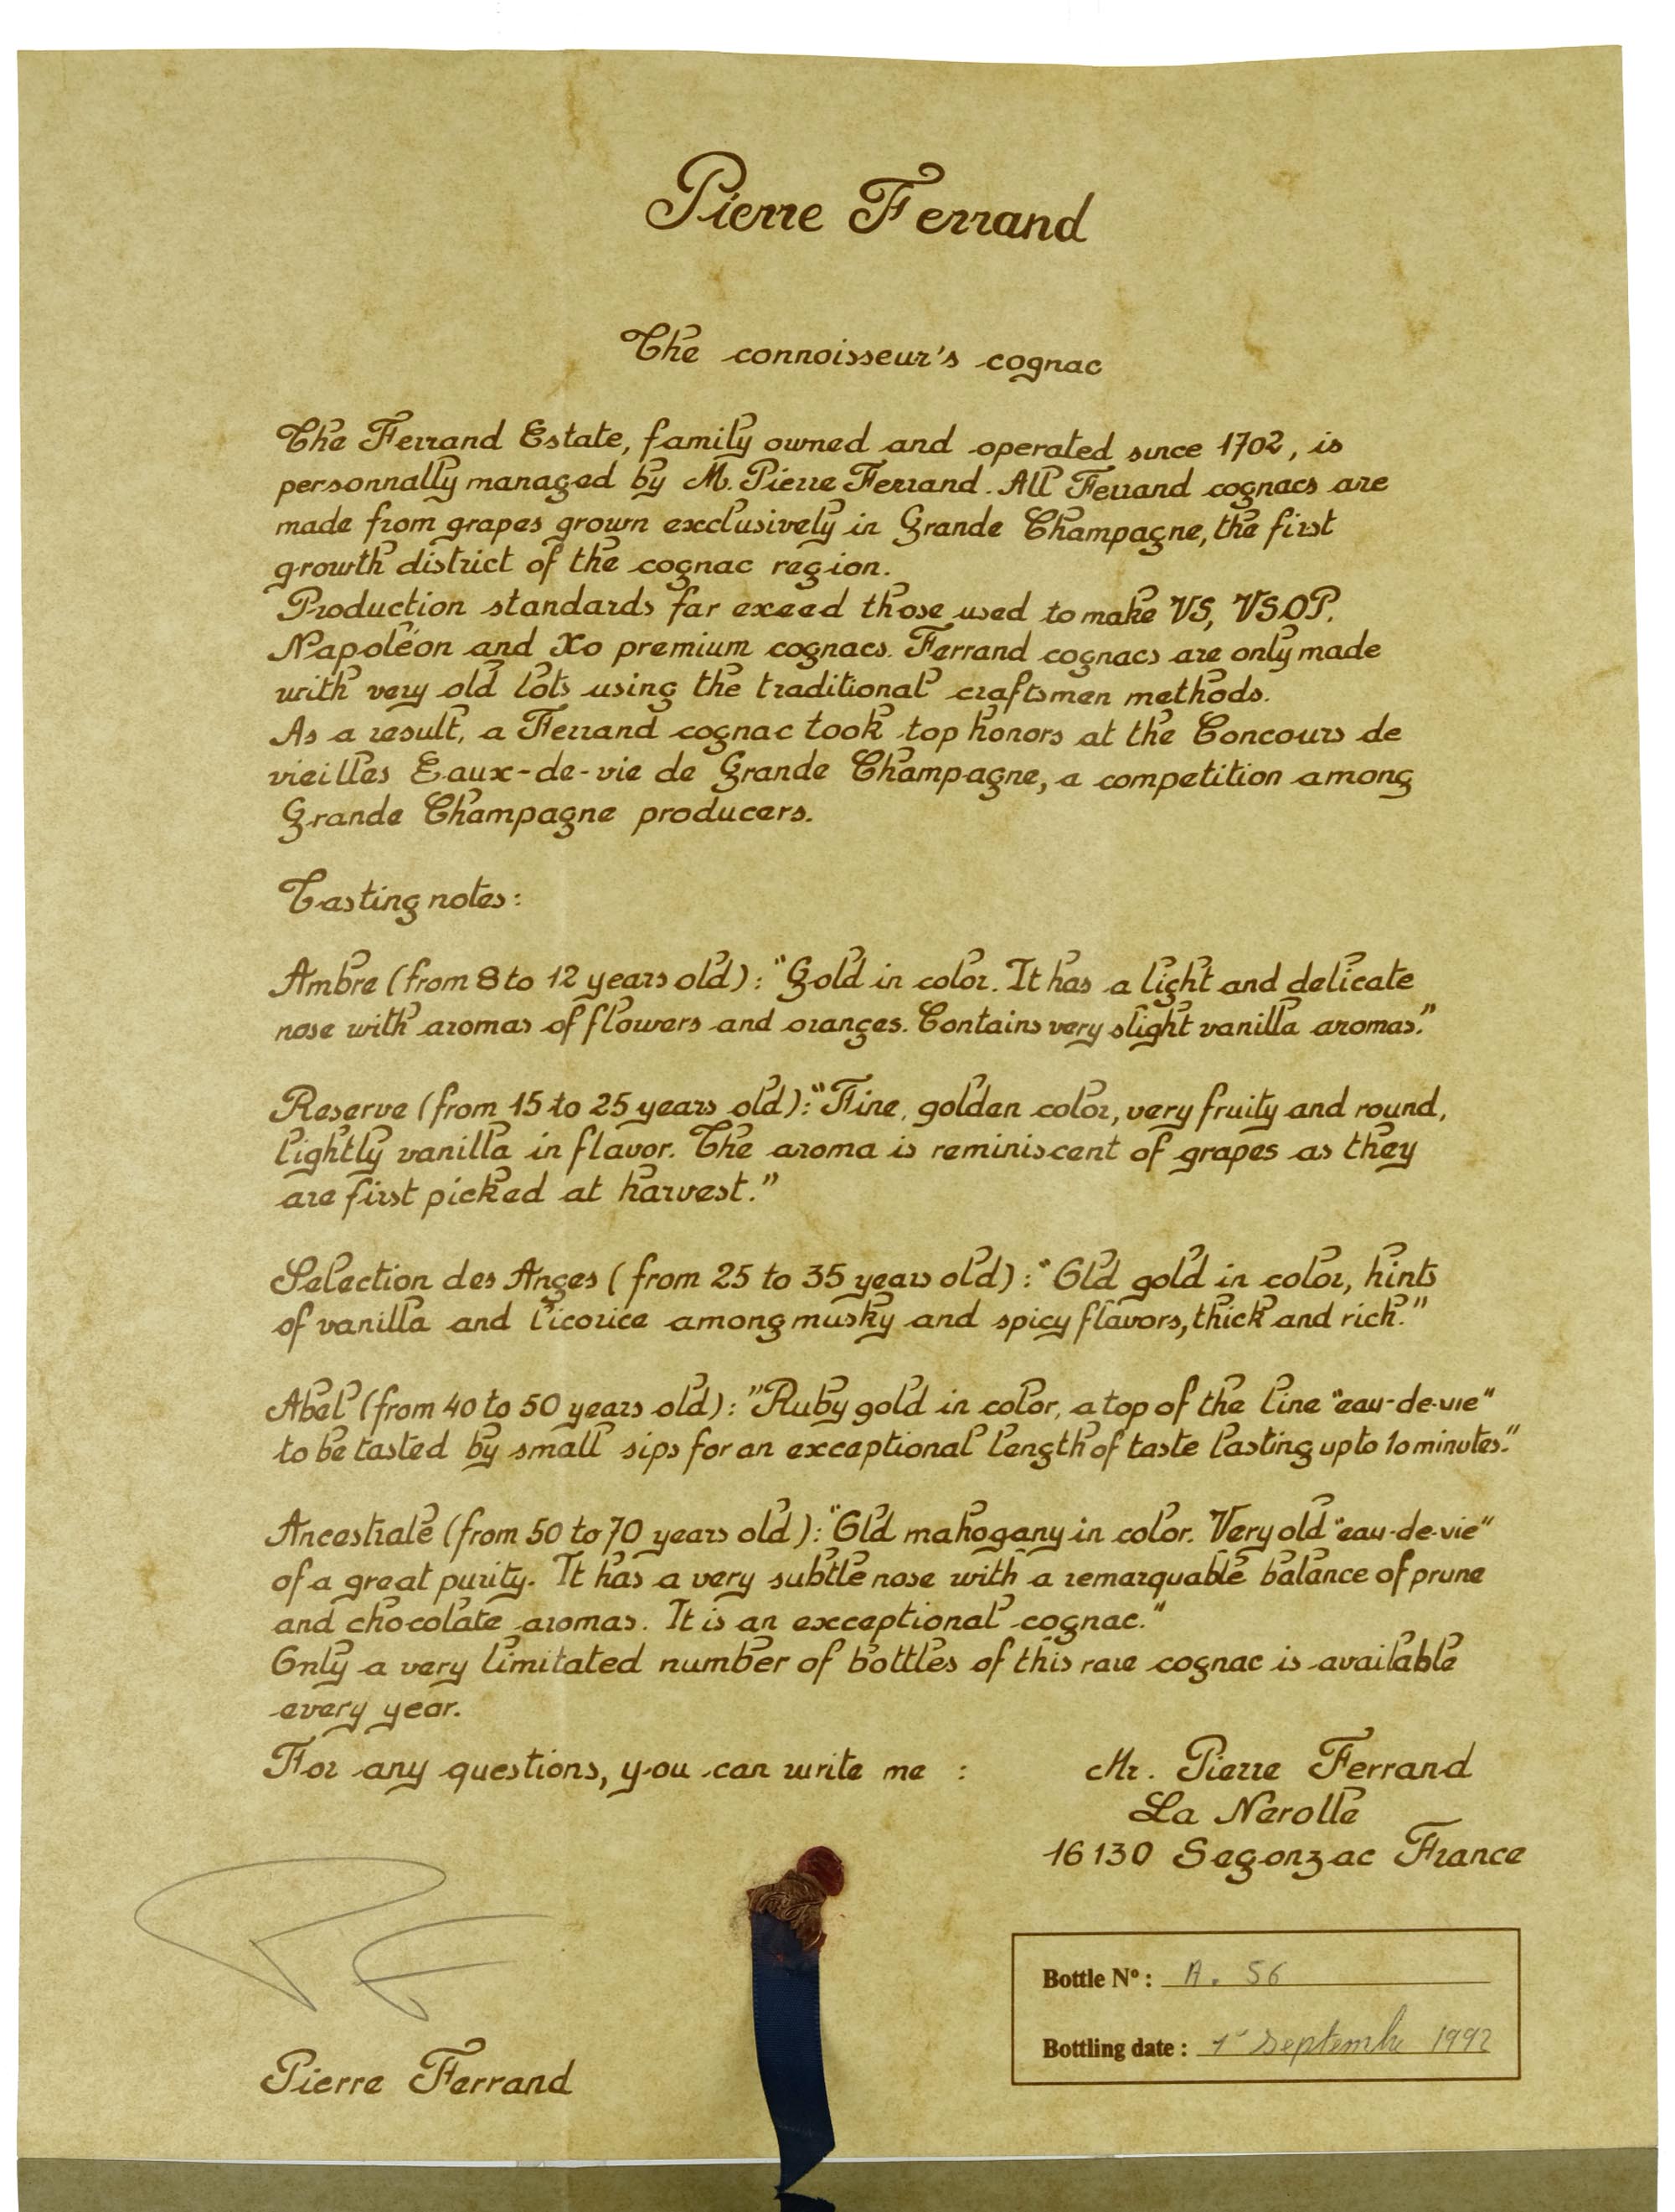 Pierre Ferrand
The connoisseur's cognac
The Ferrand Estate, family owned and operated since 1702, is
personnally managed by M. Pierre Ferrand. All Ferrand cognacs are
made from grapes grown exclusively in Grande Champagne, the first
growth district of the cognac region.
Production standards far exeed those used to make VS, VSOP,
Napoléon and Xo premium cognacs. Ferrand cognacs are only made
with very old lots using the traditional craftsmen methods.
As a result, a Ferrand cognac took top honors at the Concours de
vieilles Eaux-de-vie de Grande Champagne, a competition among
Grande Champagne producers.
Tasting notes:
Ambre (from 8 to 12 years old): "Gold in color. It has a light and delicate
nose with aromas of flowers and oranges. Contains very slight vanilla aromas."
Reserve (from 15 to 25 years old): "Fine, golden color, very fruity and round,
lightly vanilla in flavor. The aroma is reminiscent of grapes as they
are first picked at harvest."
Selection des Anges (from 25 to 35 years old): "Old gold in color, hints
of vanilla and licorice among musky and spicy flavors, thick and rich."
Abel (from 40 to 50 years old): "Ruby gold in color, a top of the line "eau-de-vie"
to be tasted by small sips for an exceptional length of taste lasting up to 10 minutes."
Ancestrale (from 50 to 70 years old): "Old mahogany in color. Very old "eau-de-vie"
of a great purity. It has a very subtle nose with a remarquable balance of prune
and chocolate aromas. It is an excceptional cognac."
Only a very limitated number of bottles of this rare cognac is available
every year.
For any questions, you can write me :
Mr. Pierre Ferrand
La Nerolle
16130 Segonzac France
PF
Pierre Ferrand
Bottle N° : A. 56
Bottling date : 1er Septembre 1992